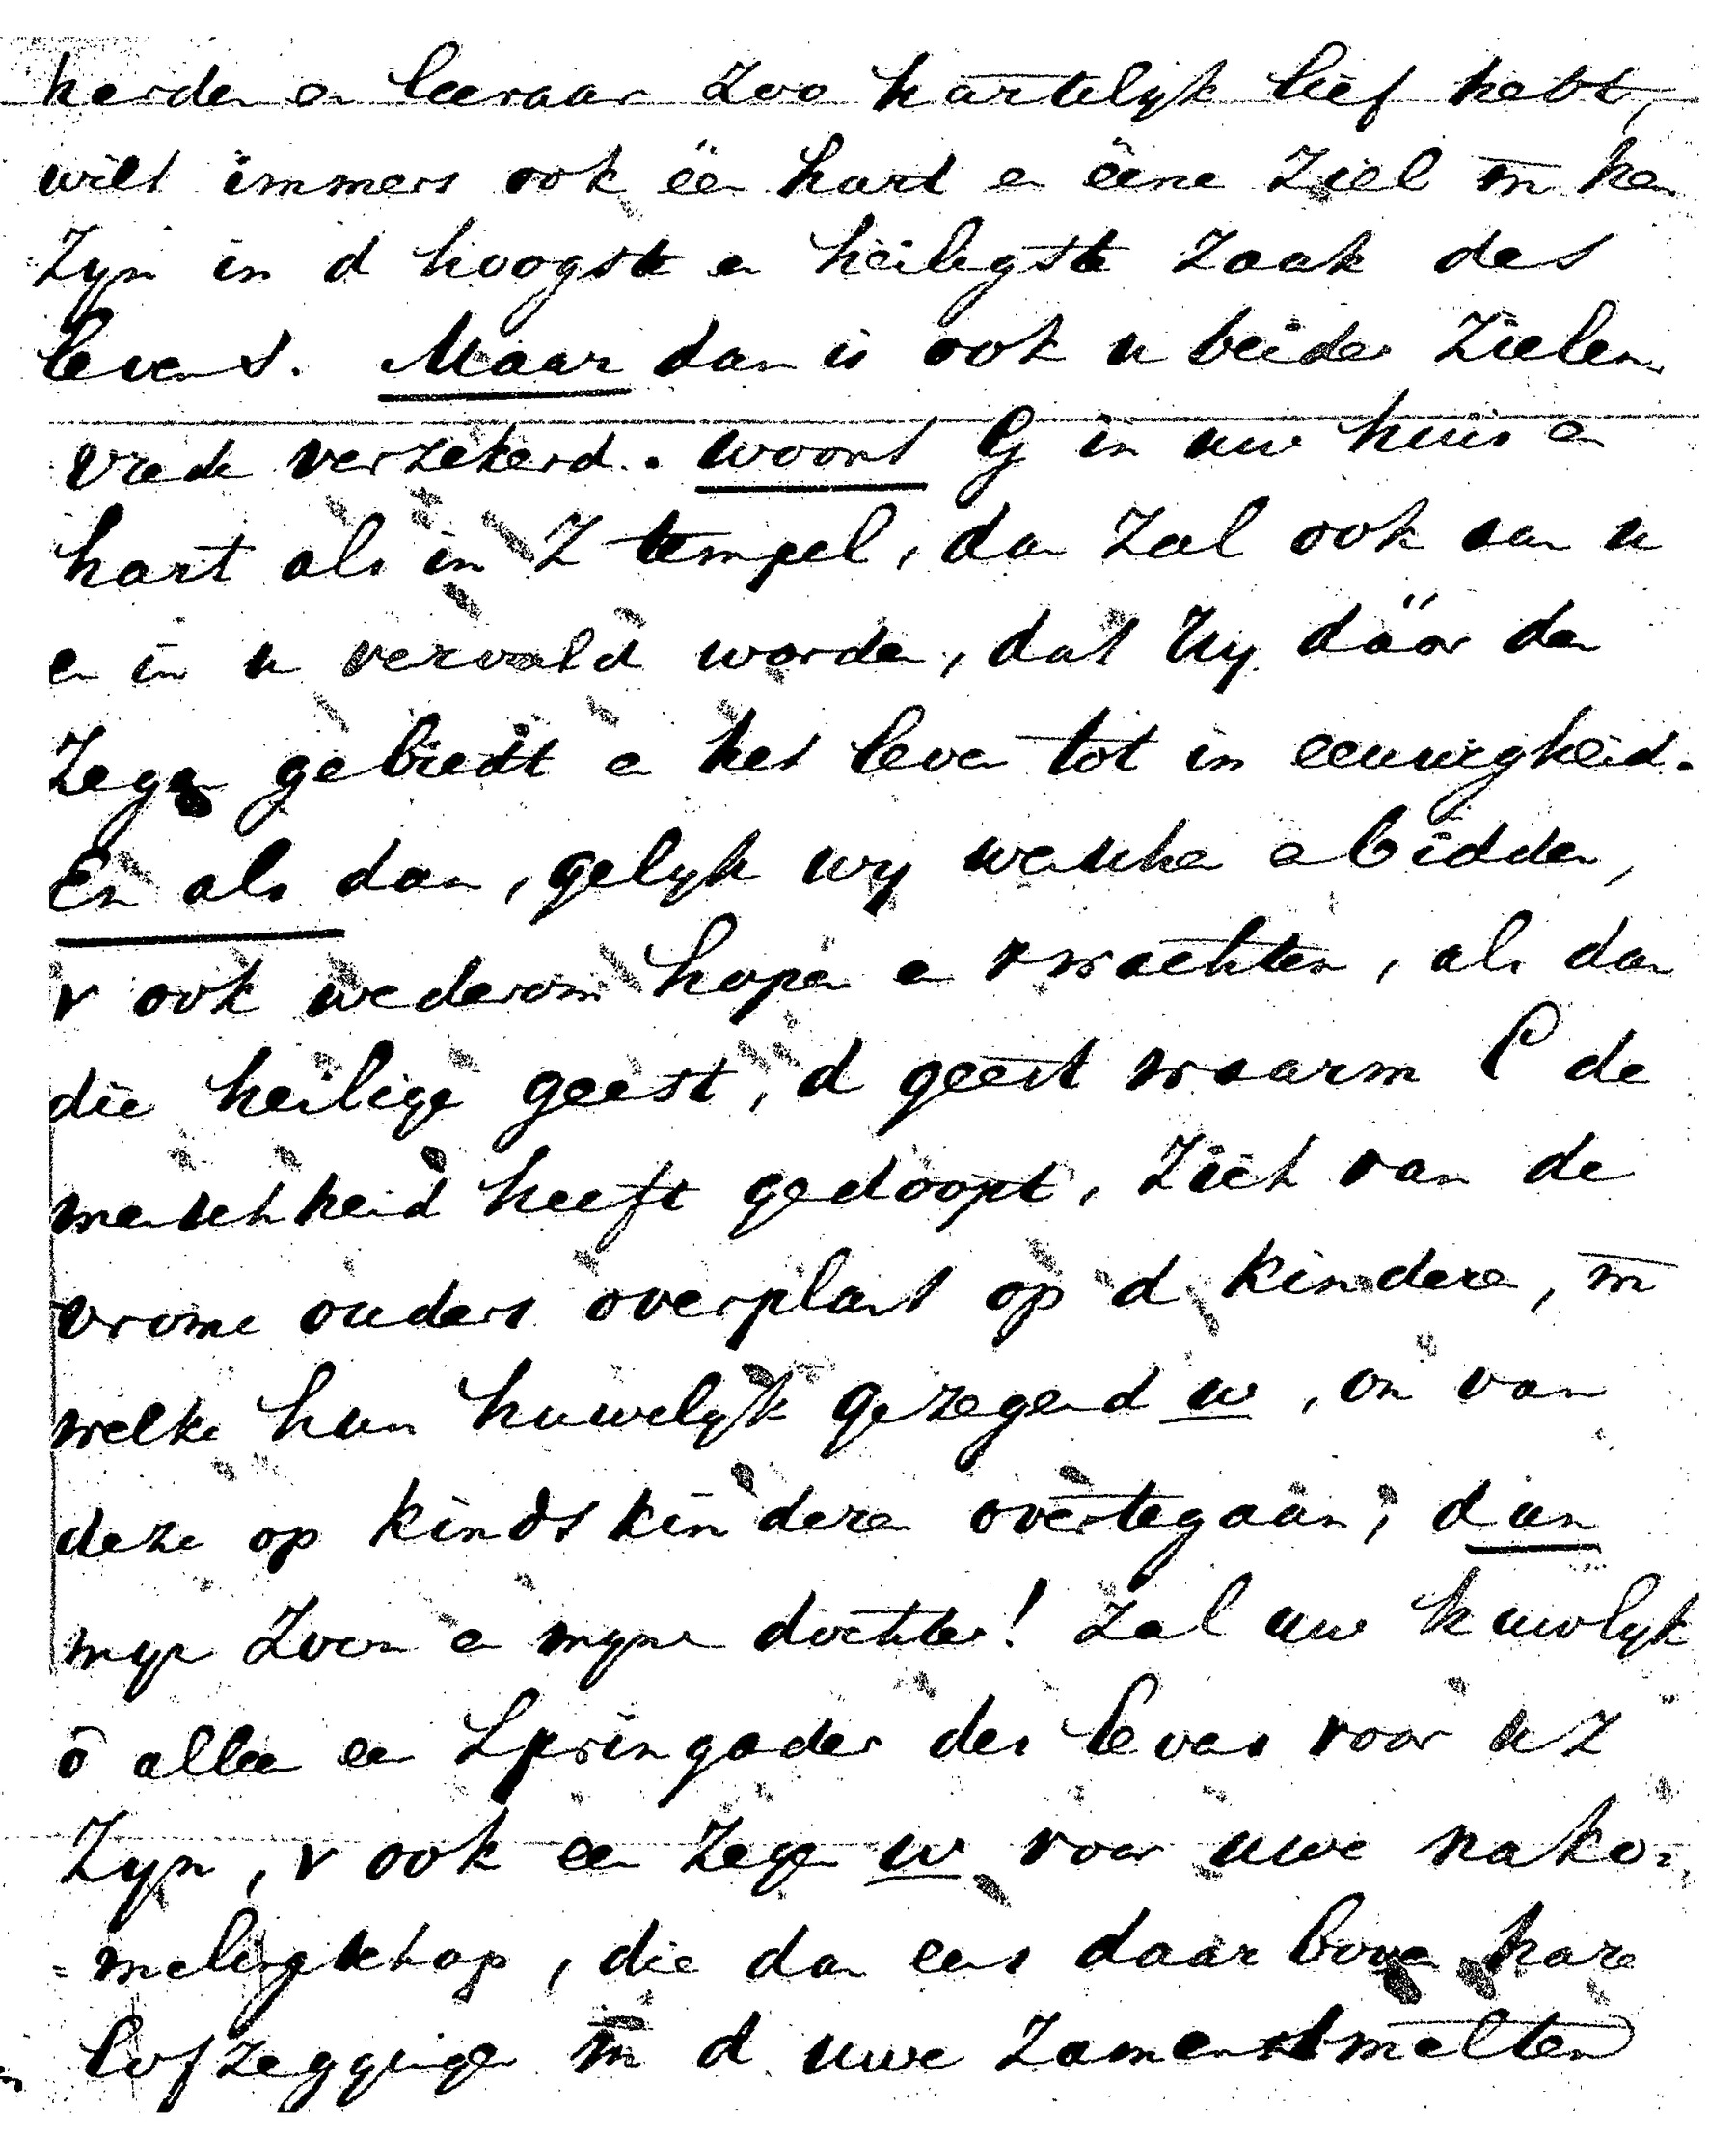 herder en leeraar zoo hartelyk lief hebt,
wilt immers ook één hart en ééne ziel m̄ hen
zyn in d hoogste en heiligste zaak des
levens. Maar dan is ook u beider zielen
vrede verzekerd. woont G in uw huis en
hart als in Z tempel, dan zal ook aan u
en in u vervuld worden, dat hy dáár den
zegen gebiedt en het leven tot in eeuwigheid.
En als dan, gelyk wy wenschen en bidden,
r ook wederom hopen en rwachten, als dan
die heilige geest, d geest waarm C de
menschheid heeft gedoopt, zich van de
vrome ouders overplant op d kinderen, m̄
welke hun huwelyk gezegend w, om van
deze op kindskinderen overtegaan; dan
myn zoon en myne dochter! zal uw huwlyk
ō alleen een springader des levens voor u Z
zyn, r ook een zegen w voor uwe nako=
=melingschap, die dan eens daar boven hare
lofzeggingen m̄ d uwe zamensmelten